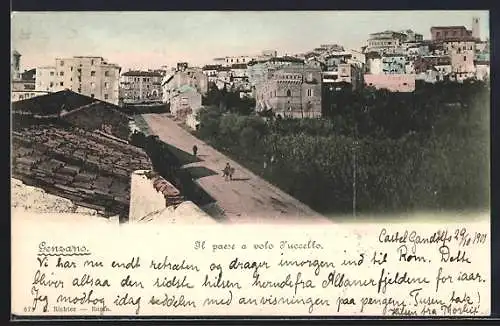 Genzano.
Il paese a volo d'uccello.
Castel Gandolfo 29/10 1901
Vi har nu endt retræten og drager imorgen ind til Rom. Dette
bliver altsaa den sidste hilsen herudefra Albanerfjeldene for iaar.
Jeg modtog idag seddelen med anvisningen paa pengene (Tusen tak!)
Richter — Roma.